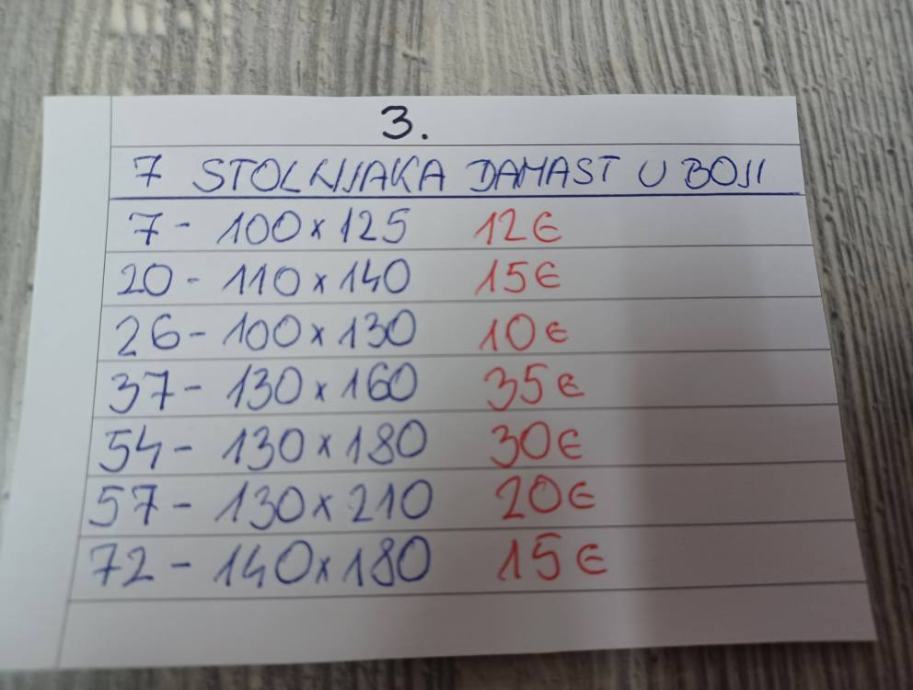 3.
7 STOLNJAKA DAMAST U BOJI
7 - 100 x 125 12€
20 - 110 x 140 15€
26 - 100 x 130 10€
37 - 130 x 160 35€
54 - 130 x 180 30€
57 - 130 x 210 20€
72 - 140 x 180 15€